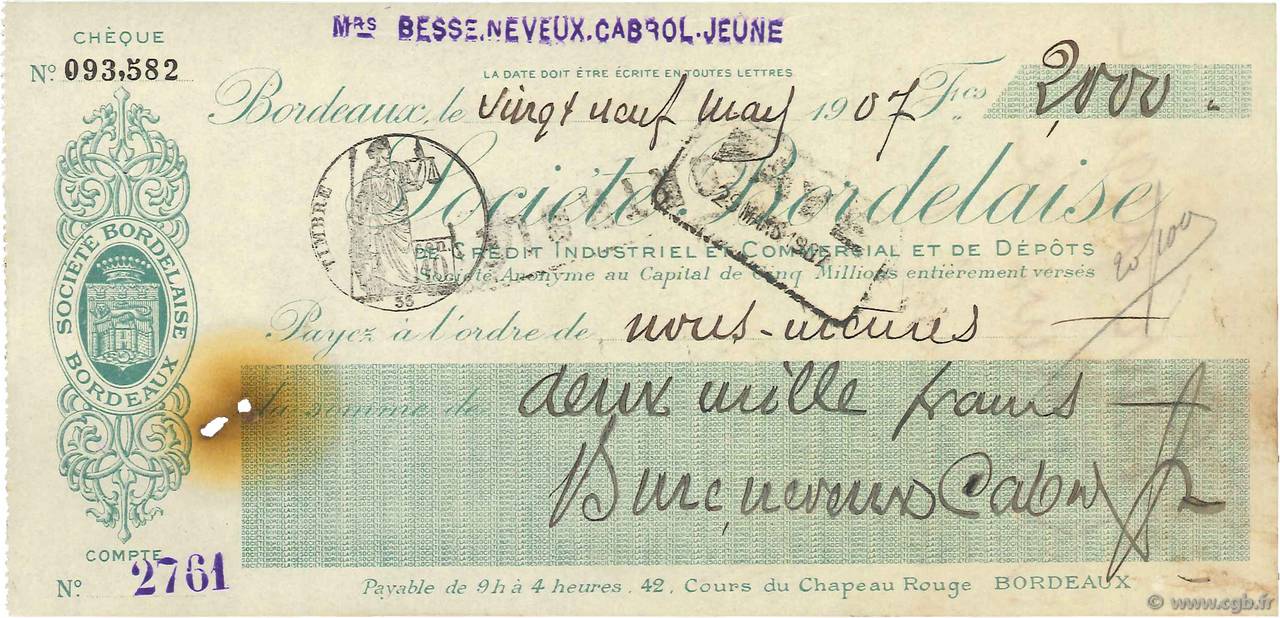 Mrs BESSE.NEVEUX.CABROL-JEUNE
CHÈQUE
No 093,582
LA DATE DOIT ÊTRE ÉCRITE EN TOUTES LETTRES
Bordeaux, le vingt neuf mars 1907 Fcs 2,000
Société Bordelaise
TIMBRE
29 MARS 1907
DE CRÉDIT INDUSTRIEL ET COMMERCIAL ET DE DÉPÔTS
Société Anonyme au Capital de Cinq Millions entièrement versés
20/100
Payez à l'ordre de nous-mêmes
SOCIÉTÉ BORDELAISE
BORDEAUX
la somme de deux mille francs
Besse neveux Cabrol Je
COMPTE
No 2761
Payable de 9h à 4 heures, 42, Cours du Chapeau Rouge BORDEAUX
© www.cgb.fr